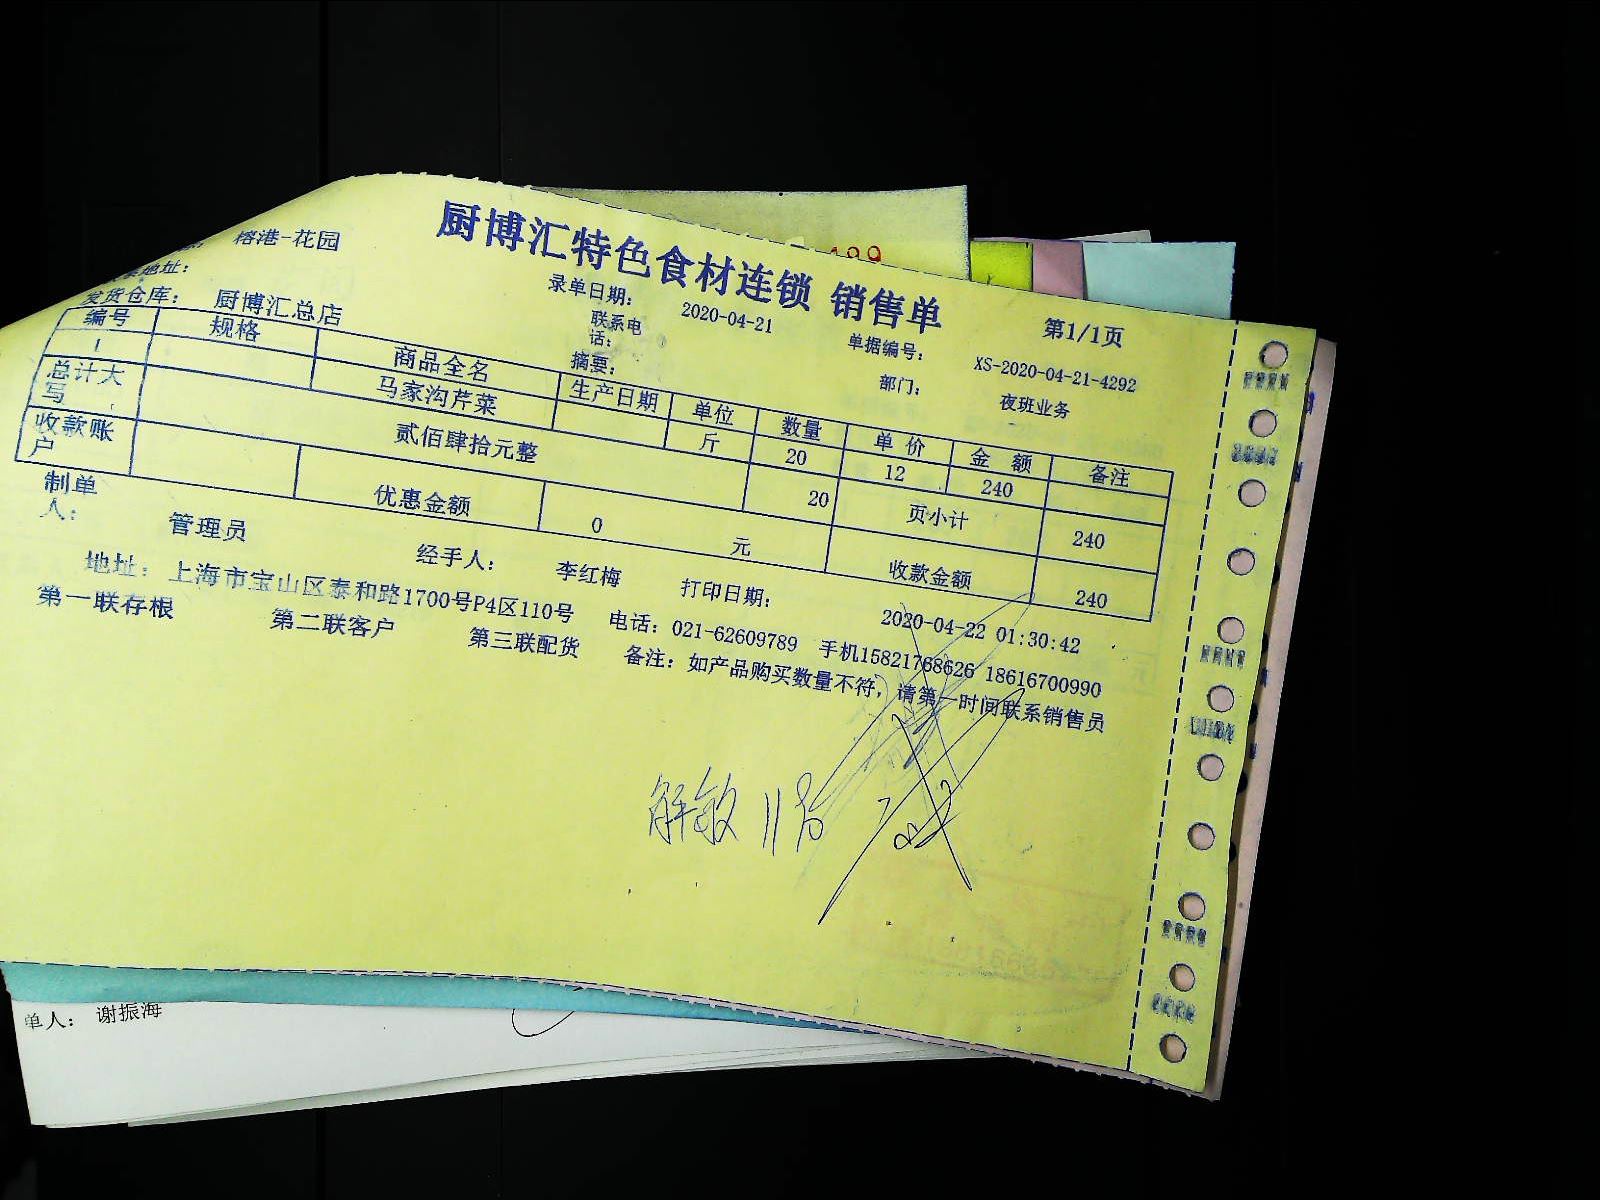 厨博汇特色食材连锁 销售单
榕港-花园 录单日期: 2020-04-21 单据编号: XS-2020-04-21-4292 第1/1页
地址: 联系电话: 部门: 夜班业务
发货仓库: 厨博汇总店 摘要:
编号 规格 商品全名 生产日期 单位 数量 单 价 金 额 备注
1 马家沟芹菜 斤 20 12 240
总计大写 贰佰肆拾元整 20 页小计 240
收款账户 优惠金额 0 元 收款金额 240
制单人: 管理员 经手人: 李红梅 打印日期: 2020-04-22 01:30:42
地址: 上海市宝山区泰和路1700号P4区110号 电话: 021-62609789 手机15821768626 18616700990
第一联存根 第二联客户 第三联配货 备注: 如产品购买数量不符, 请第一时间联系销售员
解敏
单人: 谢振海